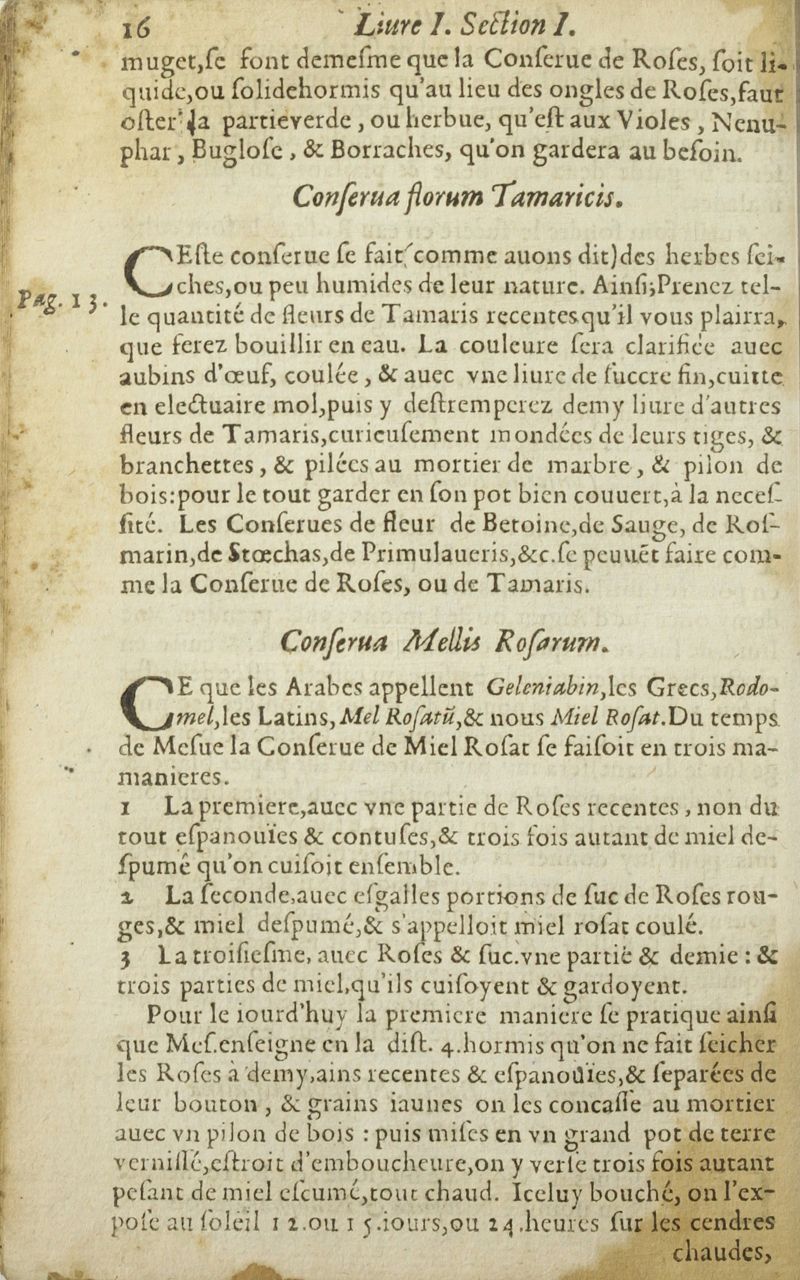 16 Liure I. Section I.
muget,ſe font demeſme que la Conſerue de Roſes, ſoit li-
quide,ou ſolidehormis qu'au lieu des ongles de Roſes,faut
oſter la partieverde , ou herbue, qu'eſt aux Violes , Nenu-
phar , Bugloſe , & Borraches, qu'on gardera au beſoin.
Conſerua florum Tamaricis.
CEſte conſerue ſe fait(comme auons dit)des herbes ſei-
ches,ou peu humides de leur nature. Ainſi;Prenez tel-
Pag. 13.
le quantité de fleurs de Tamaris recentesqu'il vous plairra,
que ferez bouillir en eau. La couleure ſera clarifiée auec
aubins d'œuf, coulée , & auec vne liure de ſuccre fin,cuitte
en electuaire mol,puis y deſtremperez demy liure d'autres
fleurs de Tamaris,curieuſement mondées de leurs tiges, &
branchettes , & pilées au mortier de marbre , & pilon de
bois:pour le tout garder en ſon pot bien couuert,à la neceſ-
ſité. Les Conſerues de fleur de Betoine,de Sauge, de Roſ-
marin,de Stœchas,de Primulaueris,&c.ſe peuuēt faire com-
me la Conſerue de Roſes, ou de Tamaris.
Conſerua Mellis Roſarum.
CE que les Arabes appellent Geleniabin,les Grecs,Rodo-
mel,les Latins, Mel Roſatū,& nous Miel Roſat.Du temps
de Meſue la Conſerue de Miel Roſat ſe faiſoit en trois ma-
manieres.
1 La premiere,auec vne partie de Roſes recentes , non du
tout eſpanouïes & contuſes,& trois fois autant de miel de-
ſpumé qu'on cuiſoit enſemble.
2 La ſeconde,auec eſgalles portions de ſuc de Roſes rou-
ges,& miel deſpumé,& s'appelloit miel roſat coulé.
3 La troiſieſme, auec Roſes & ſuc.vne partie & demie : &
trois parties de miel,qu'ils cuiſoyent & gardoyent.
Pour le iourd'huy la premiere maniere ſe pratique ainſi
que Meſ.enſeigne en la diſt. 4.hormis qu'on ne fait ſeicher
les Roſes à demy,ains recentes & eſpanoüies,& ſeparées de
leur bouton , & grains iaunes on les concaſſe au mortier
auec vn pilon de bois : puis miſes en vn grand pot de terre
verniſſé,eſtroit d'emboucheure,on y verſe trois fois autant
peſant de miel eſcumé,tout chaud. Iceluy bouché, on l'ex-
poſe au ſoleil 12.ou 15.iours,ou 24.heures ſur les cendres
chaudes,